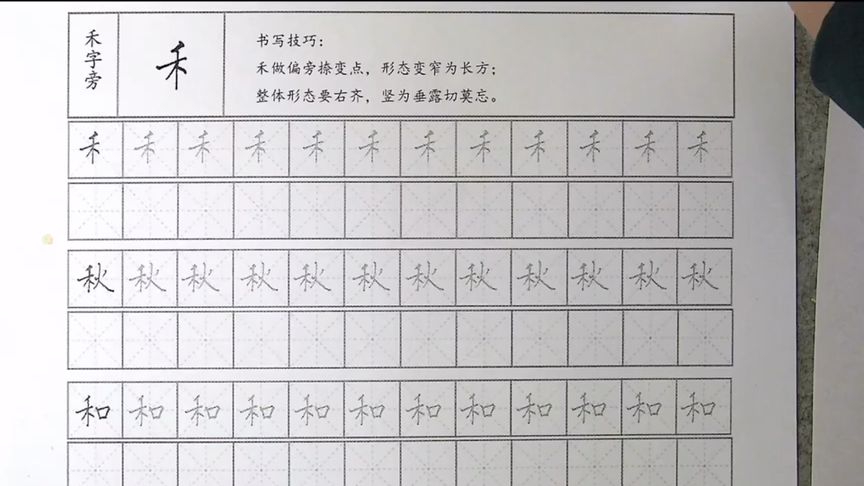 禾字旁
禾
书写技巧：
禾做偏旁捺变点，形态变窄为长方；
整体形态要右齐，竖为垂露切莫忘。
禾禾禾禾禾禾禾禾禾禾禾禾
秋秋秋秋秋秋秋秋秋秋秋秋
和和和和和和和和和和和和